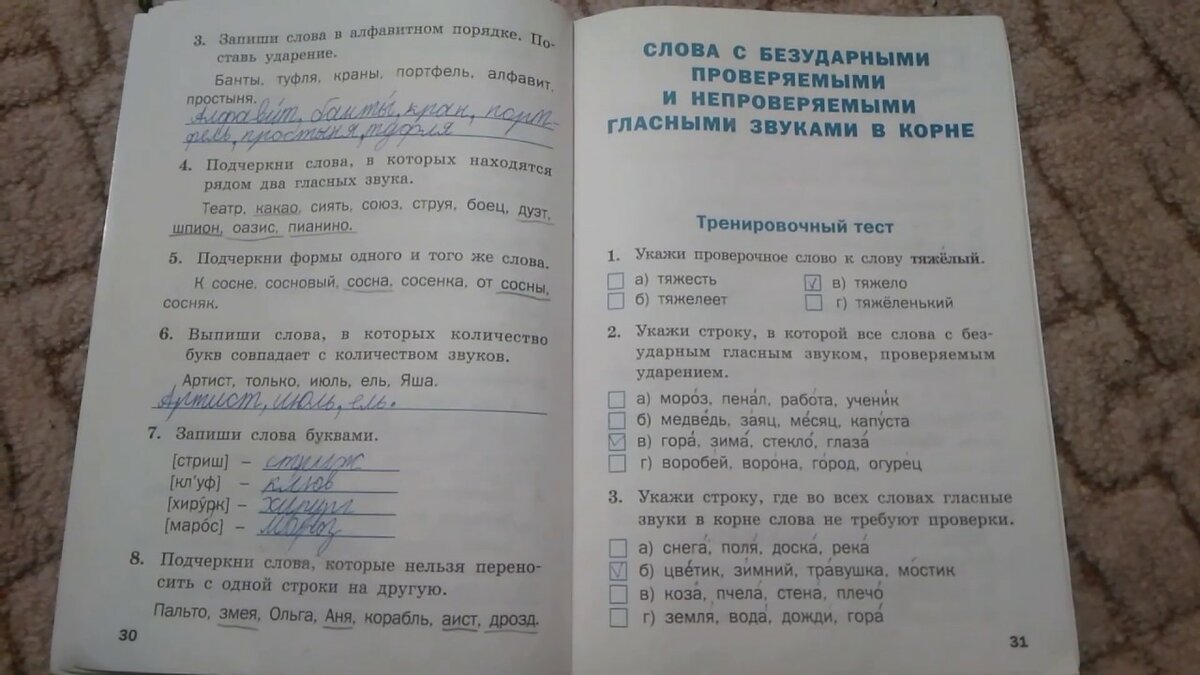 3. Запиши слова в алфавитном порядке. По-
ставь ударение.
Банты, туфля, краны, портфель, алфавит,
простыня.
Алфави́т, банты́, кран, порт-
фель, простыня, туфля
4. Подчеркни слова, в которых находятся
рядом два гласных звука.
Театр, какао, сиять, союз, струя, боец, дуэт,
шпион, оазис, пианино.
5. Подчеркни формы одного и того же слова.
К сосне, сосновый, сосна, сосенка, от сосны,
сосняк.
6. Выпиши слова, в которых количество
букв совпадает с количеством звуков.
Артист, только, июль, ель, Яша.
Артист, июль, ель.
7. Запиши слова буквами.
[стриш] – стриж
[кл'уф] – клюв
[хиру́рк] – хирург
[маро́с] – мороз
8. Подчеркни слова, которые нельзя перено-
сить с одной строки на другую.
Пальто, змея, Ольга, Аня, корабль, аист, дрозд.
30
СЛОВА С БЕЗУДАРНЫМИ
ПРОВЕРЯЕМЫМИ
И НЕПРОВЕРЯЕМЫМИ
ГЛАСНЫМИ ЗВУКАМИ В КОРНЕ
Тренировочный тест
1. Укажи проверочное слово к слову тяжёлый.
а) тяжесть
в) тяжело
б) тяжелеет
г) тяжёленький
2. Укажи строку, в которой все слова с без-
ударным гласным звуком, проверяемым
ударением.
а) моро́з, пена́л, рабо́та, учени́к
б) медве́дь, за́яц, ме́сяц, капу́ста
в) гора́, зима́, стекло́, глаза́
г) воробе́й, воро́на, го́род, огуре́ц
3. Укажи строку, где во всех словах гласные
звуки в корне слова не требуют проверки.
а) снега́, поля́, доска́, река́
б) цве́тик, зи́мний, тра́вушка, мо́стик
в) коза́, пчела́, стена́, плечо́
г) земля́, вода́, дожди́, гора́
31